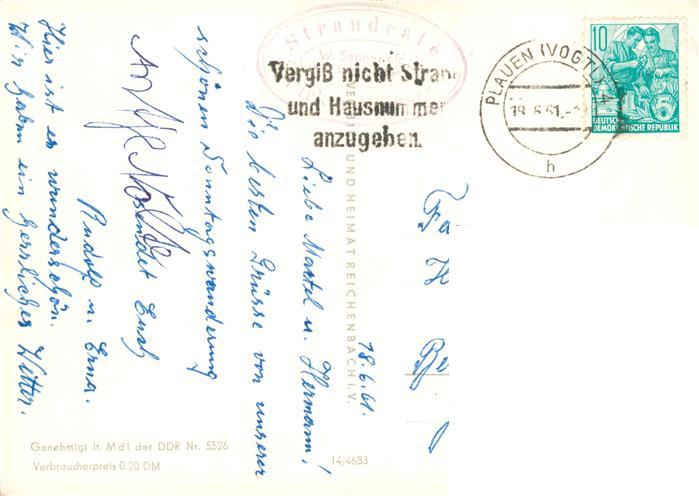 Strandcafe
Vergiß nicht Straß
und Hausnummer
anzugeben.
PLAUEN (VOGTL)
18.6.61.-
h
10
DEUTSCHE
DEMOKRATISCHE REPUBLIK
18.6.61.
Liebe Martel u. Hermann!
Die besten Grüsse von unserer
schönen Sonntagswanderung
sendet Euch
Rudolf u. Erna.
Hier ist es wunderschön.
Wir haben ein herrliches Wetter.
Fa
K
Be
UND HEIMAT REICHENBACH I.V.
Genehmigt lt. MdI der DDR Nr. 5526
Verbraucherpreis 0.20 DM
14|4683